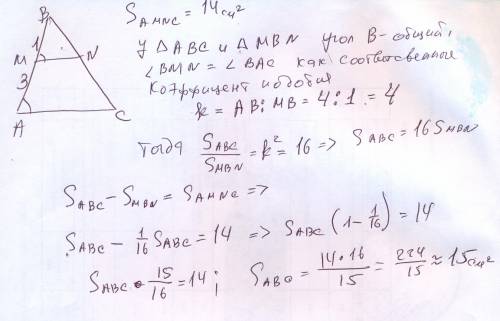 S AMNC = 14 см²
У △ ABC и △ MBN угол B - общий,
∠BMN = ∠BAC как соответственные
Коэффициент подобия
k = AB : MB = 4 : 1 = 4
Тогда S ABC / S MBN = k² = 16 => S ABC = 16 S MBN
S ABC - S MBN = S AMNC =>
S ABC - 1/16 S ABC = 14 => S ABC (1 - 1/16) = 14
S ABC • 15/16 = 14; S ABC = 14 • 16 / 15 = 224/15 ≈ 15 см²
B
1
M N
3
A C